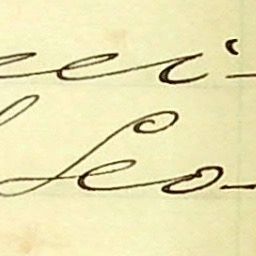 eei-
Leo-